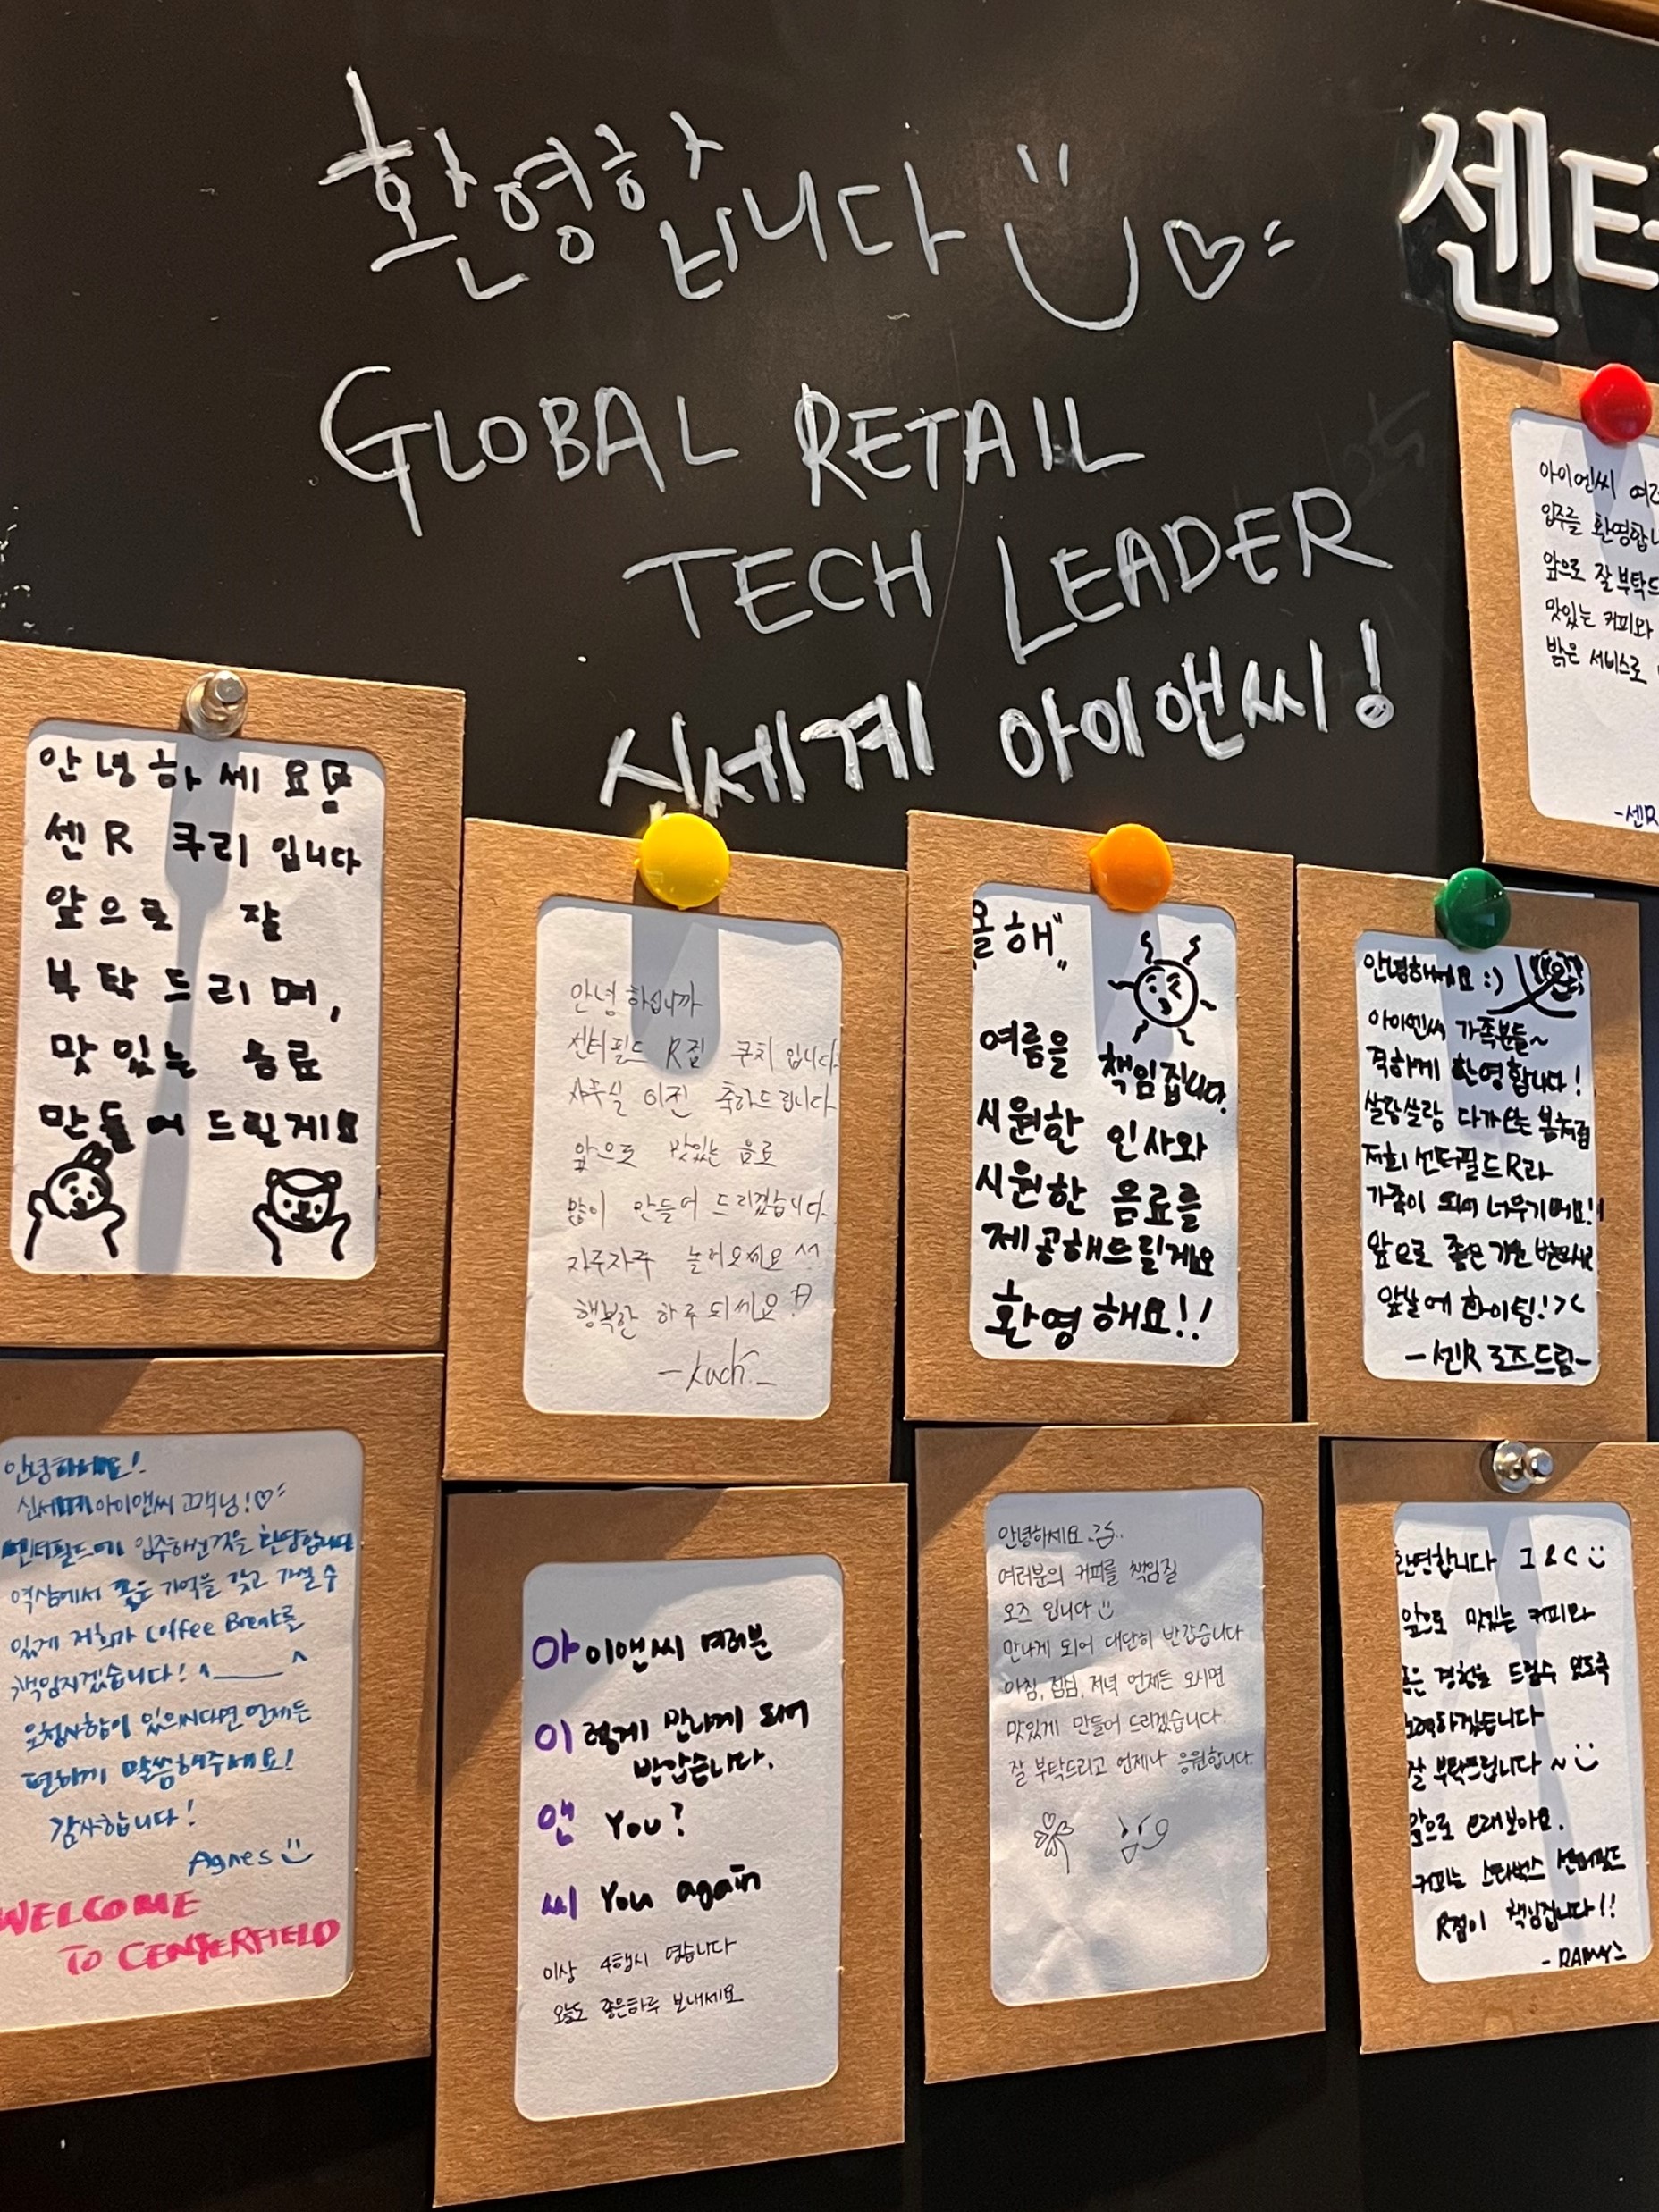 환영합니다
GLOBAL RETAIL
TECH LEADER
신세계 아이앤씨!
센터
아이엔씨
입주를 환영합니
앞으로 잘 부탁드
맛있는 커피와
밝은 서비스로
-센R
안녕하세요
센R 쿠리 입니다
앞으로 잘
부탁드리며,
맛있는 음료
만들어드릴게요
안녕하십니까
센터필드 R점 쿠치입니다.
사무실 이전 축하드립니다
앞으로 맛있는 음료
많이 만들어 드리겠습니다.
자주자주 놀러오세요 ^^
행복한 하루되세요
-kuchi-
올해"
여름을 책임집니다.
시원한 인사와
시원한 음료를
제공해드릴게요
환영해요!!
안녕하세요 :)
아이엔씨 가족분들~
격하게 환영합니다!
살랑살랑 다가오는 봄처럼
저희 센터필드R과
가족이 되어 너무기뻐요!!
앞으로 좋은 기운 받으시고
앞날에 화이팅!><
-센R 로즈드림-
안녕하세요!
신세계아이앤씨 고객님!♡
센터필드에 입주하신것을 환영합니다.
역삼에서 좋은 기억을 갖고 가실 수
있게 저희가 Coffee Break를
책임지겠습니다! ^____^
요청사항이 있으시다면 언제든
편하게 말씀해주세요!
감사합니다!
Agnes
WELCOME
TO CENTERFIELD
아이앤씨 여러분
이렇게 만나게 되어
반갑습니다.
앤 You?
씨 You again
이상 4행시 였습니다
오늘도 좋은하루 보내세요
안녕하세요
여러분의 커피를 책임질
오즈 입니다
만나게 되어 대단히 반갑습니다
아침, 점심, 저녁 언제든 오시면
맛있게 만들어 드리겠습니다.
잘 부탁드리고 언제나 응원합니다.
환영합니다 I&C
앞으로 맛있는 커피와
좋은 경험을 드릴수 있도록
노력하겠습니다
잘 부탁드립니다~
앞으로 오래보아요.
커피는 스타벅스 센터필드
R점이 책임집니다!!